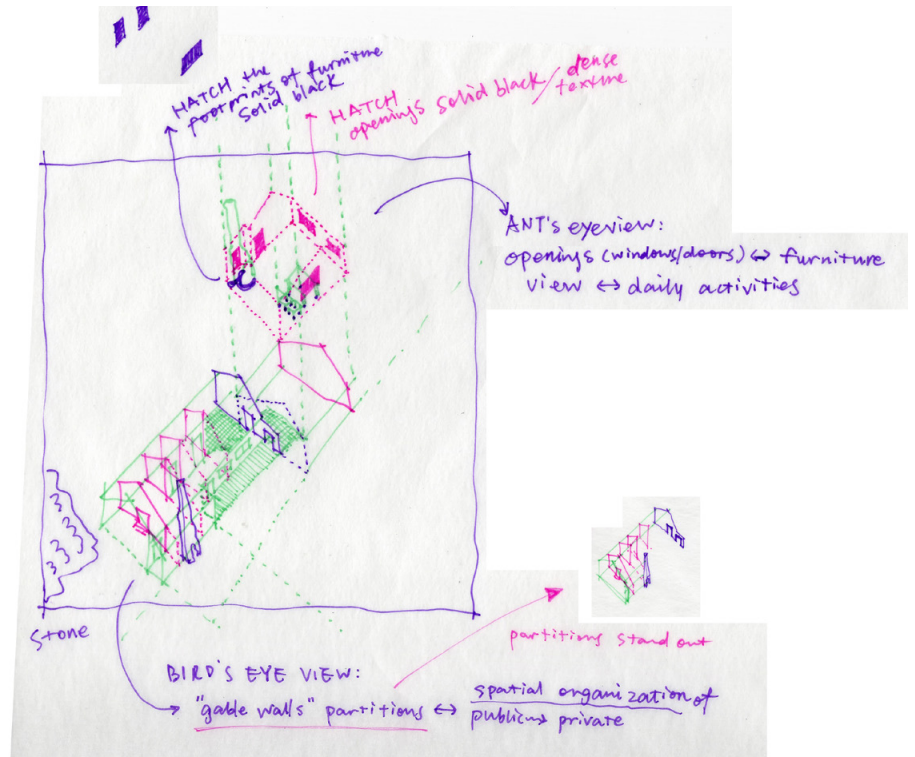 HATCH the
footprints of furniture
solid black
HATCH
openings solid black/dense
texture
ANT's eyeview:
openings (windows/doors) ↔ furniture
view ↔ daily activities
stone
partitions stand out
BIRD'S EYE VIEW:
"gable walls" partitions ↔ spatial organization of
public→private